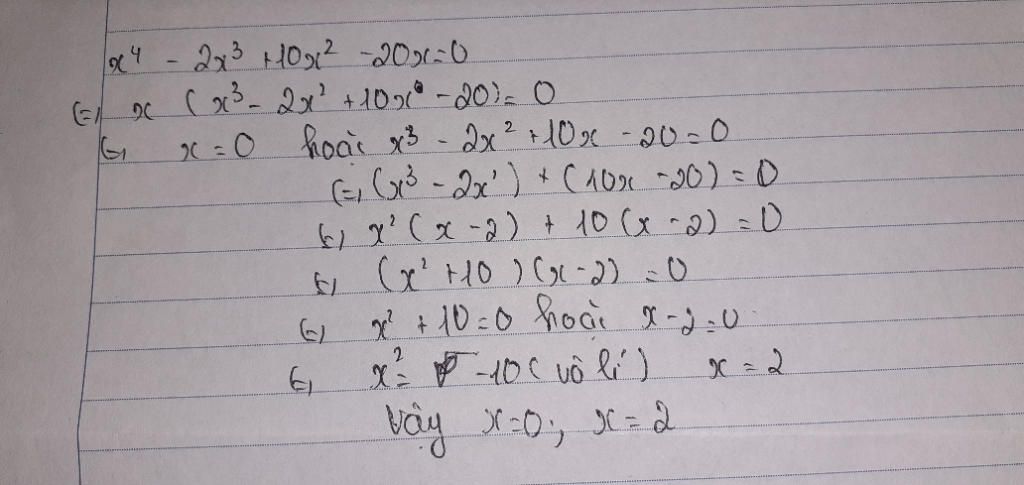 x⁴ - 2x³ + 10x² - 20x = 0
⇔ x (x³ - 2x² + 10x - 20) = 0
⇔ x = 0 hoặc x³ - 2x² + 10x - 20 = 0
⇔ (x³ - 2x²) + (10x - 20) = 0
⇔ x² (x - 2) + 10 (x - 2) = 0
⇔ (x² + 10) (x - 2) = 0
⇔ x² + 10 = 0 hoặc x - 2 = 0
⇔ x² = -10 (vô lí) x = 2
Vậy x = 0; x = 2